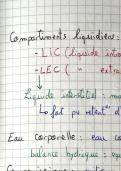 Compartiments liquidiens :
- LIC (liquide intra
- LEC ( " extra
Liquide interstitiel : m
↳ fait pu
Eau corporelle : eau co
balance hydrique :